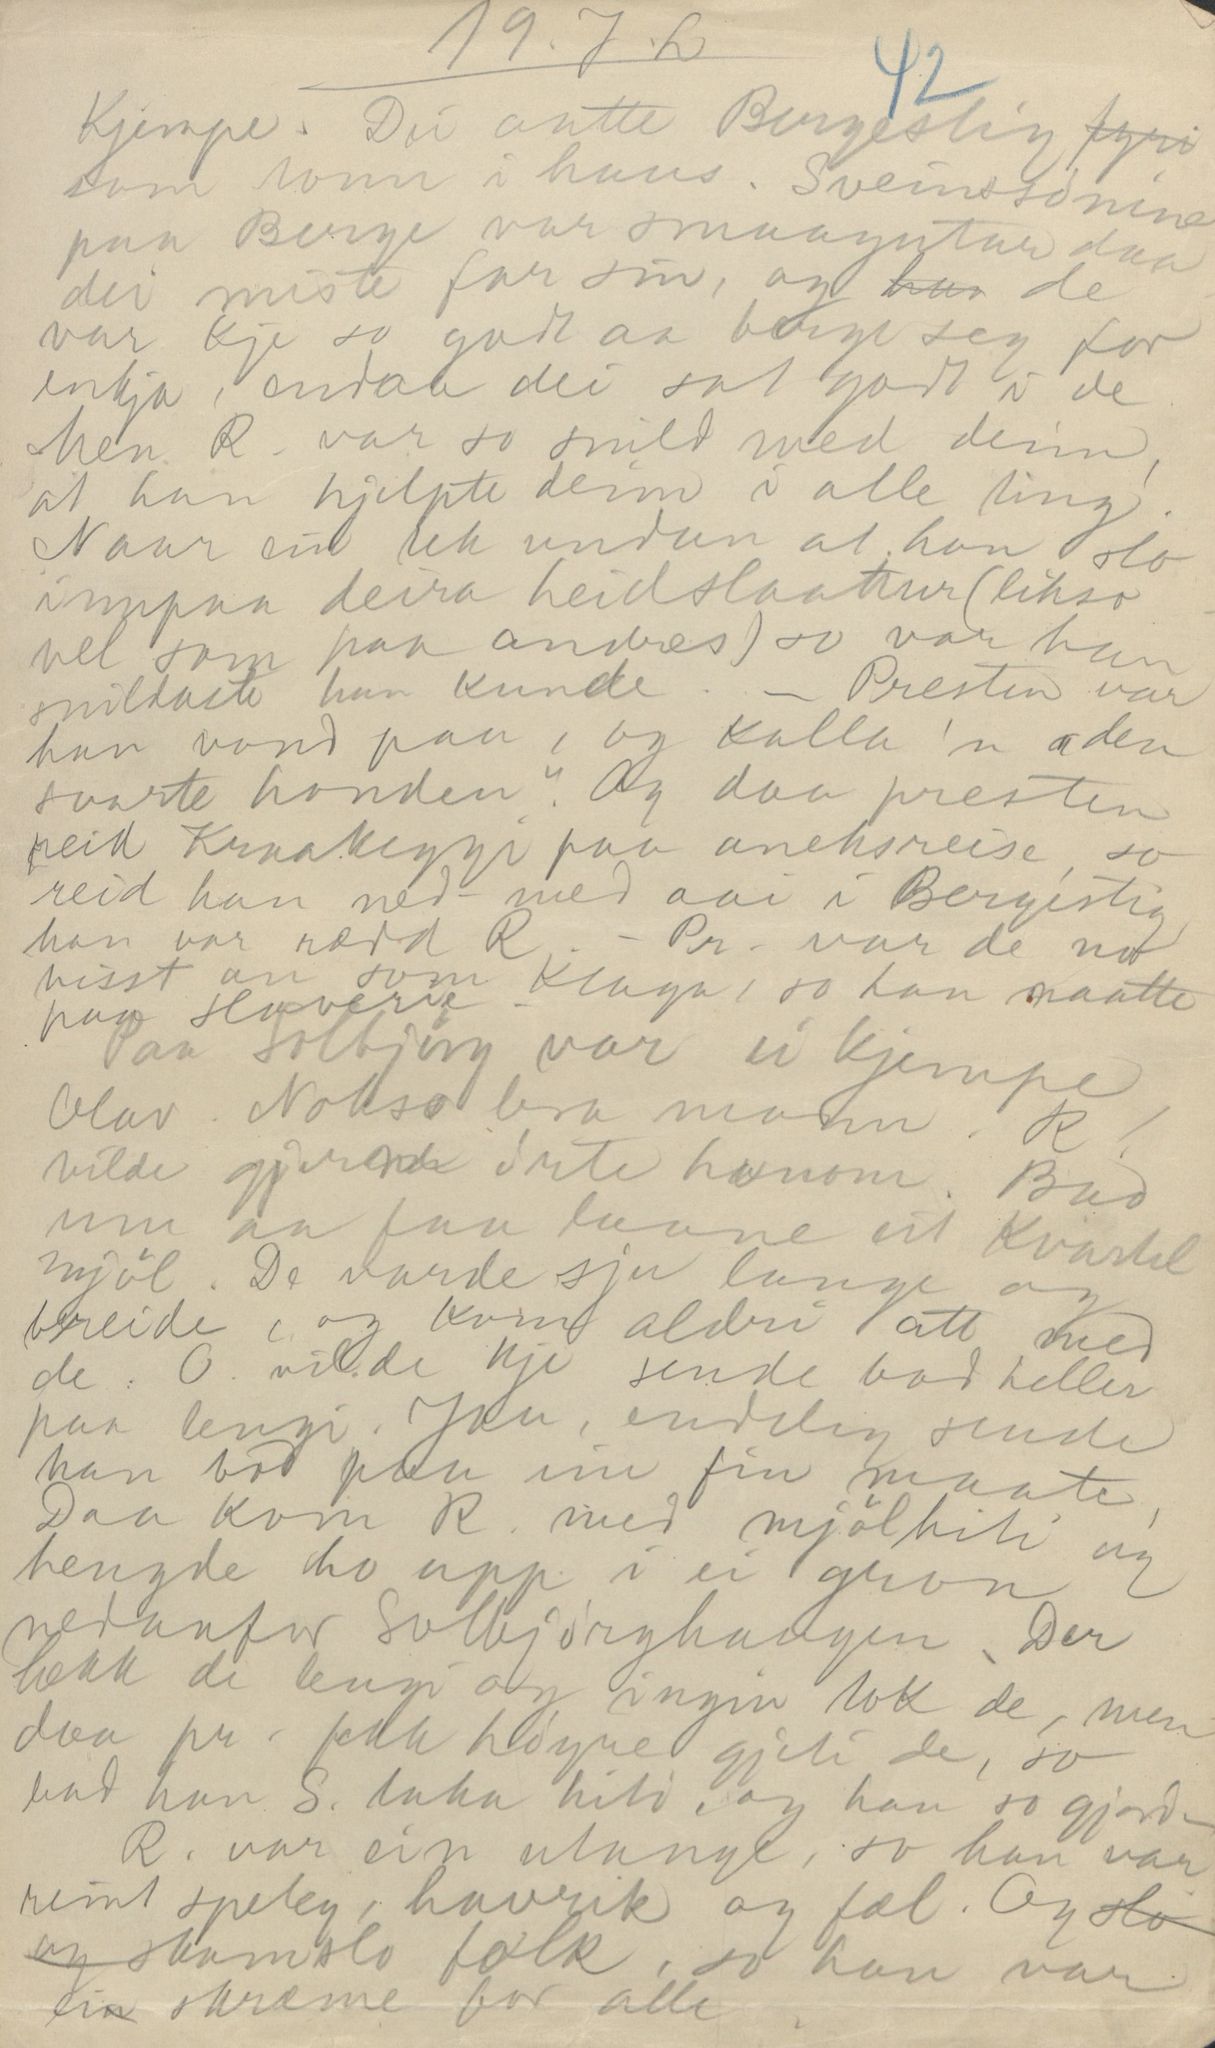 19. 7. h
42
Kjempe. Dei aatte Bergestig fyri
som tonn i haus. Sveinssönine
paa Berge var smaagutar daa
dei miste far sin, og han de
var kje so godt aa berge seg for
enkja, endaa dei sat godt i de
Men R. var so snild med deim,
at han hjelpte deim i alle ting.
Naar ein tek undan at han slo
innpaa deira heidslaattur (likso
vel som paa andres) so var han
snildaste han kunde. – Presten var
han vond paa, og kalla 'n "den
svarte honden". Og daa presten
reid Kraakeggi paa aneksreise, so
reid han ned-med aai i Bergestig
han var rædd R. – Pr. var de no
visst an som klaga, so han maatte
paa slaveri –
Paa Solbjörg var ei kjempe
Olav. Nokso bra mann. R.
vilde gjerne örte honom. Bad
um aa faa laane eit kvartel
mjöl. De varde sju lange og
breide, og kom aldri att med
de. O. vilde kje sende bod heller
paa lengi. Jau, endeleg sende
han bod paa ein fin maate,
Daa kom R. med mjölhiti og
hengde ho upp i ei gron
nedanfor Solbjörghaugen. Der
hekk de lengi og ingin tok de, men
daa pr. fekk höyre gjeti de, so
bad han S. taka hiti, og han so gjorde
R. var ein utange, so han var
reint speleg, havrik og fæl. Og slo
og skamslo folk, so han var
ein skræme for alle.